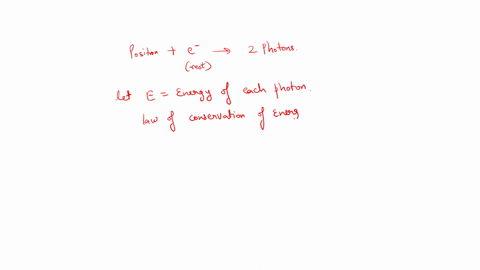 Positon + e⁻ → 2 Photons.
(rest)
let E = Energy of each photon.
law of conservation of Energ